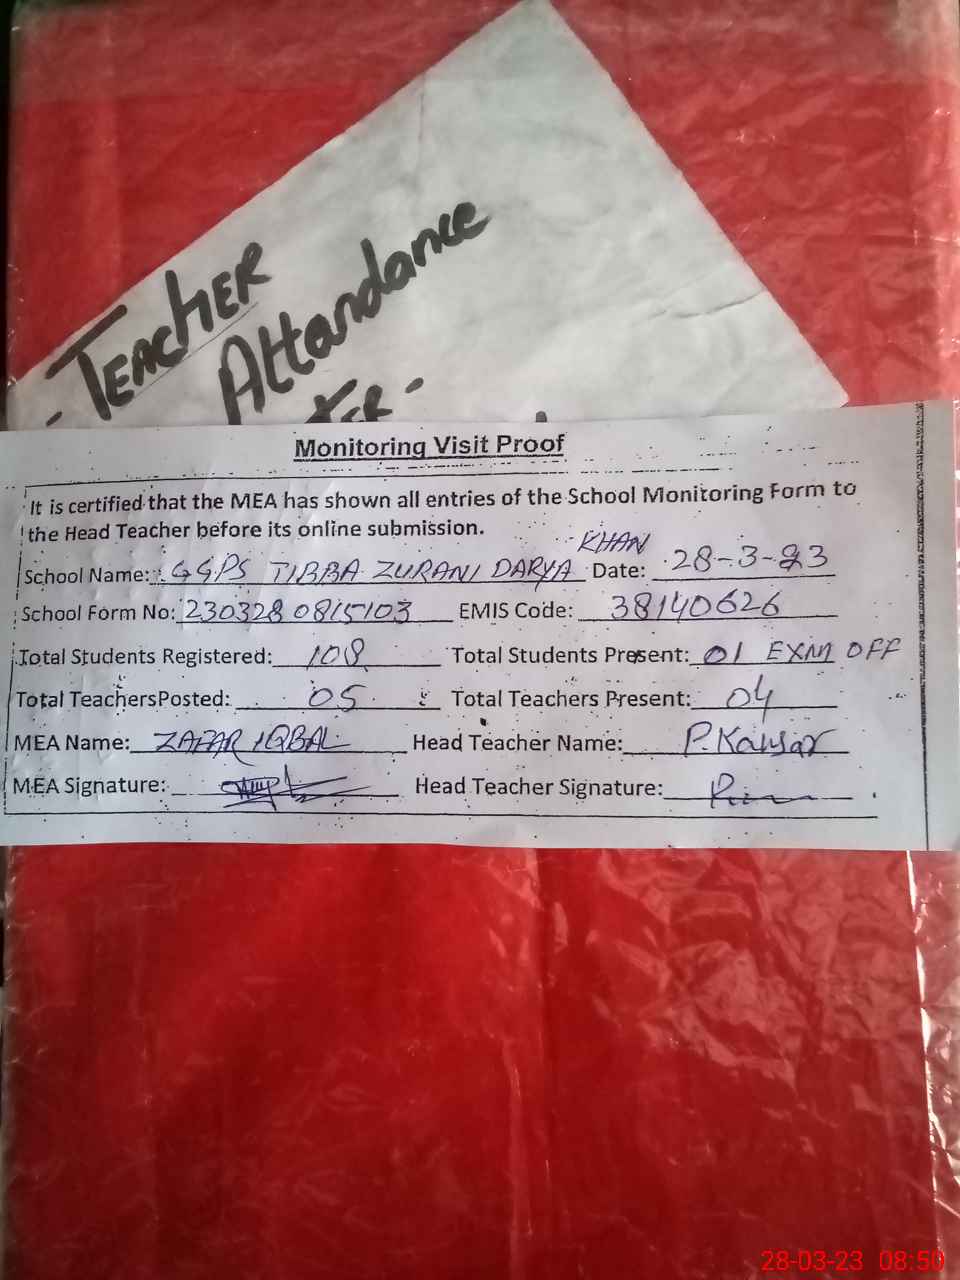 - TEACHER
Attandance
TER -
Monitoring Visit Proof
It is certified that the MEA has shown all entries of the School Monitoring Form to
the Head Teacher before its online submission.
School Name: GGPS TIBBA ZURANI DARYA KHAN Date: 28-3-23
School Form No: 230328 0815103 EMIS Code: 38140626
Total Students Registered: 108 Total Students Present: 01 EXM OFF
Total TeachersPosted: 05 Total Teachers Present: 04
MEA Name: ZAFAR IQBAL Head Teacher Name: P.Kausar
MEA Signature: Head Teacher Signature:
28-03-23 08:50